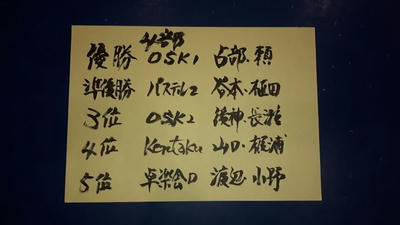 4部
優勝 OSK1 占部・頼
準優勝 パステル2 谷本・植田
3位 OSK2 後神・長瀧
4位 Kentaku 山口・梶浦
5位 卓楽会D 渡辺・小野